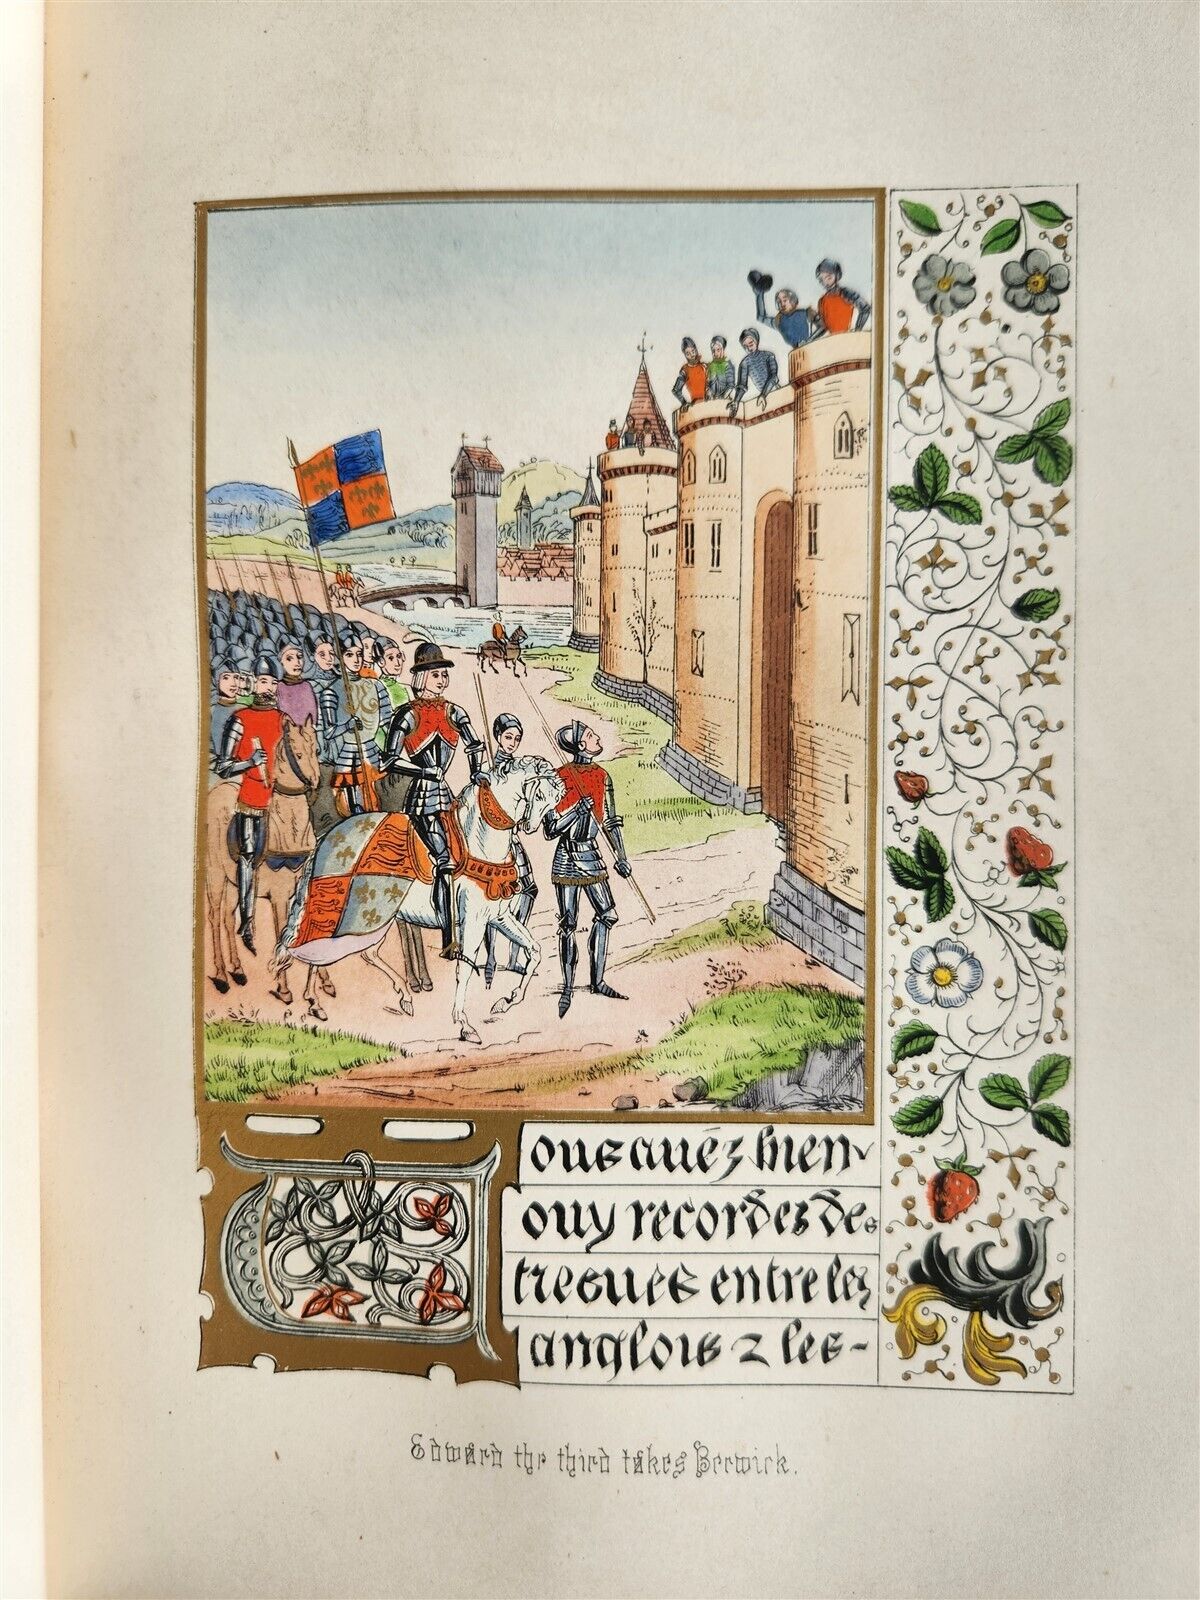 ousauéz bien
ouy recordez des
tresues entre les
anglois 2 les-
Edward the third takes Berwick.